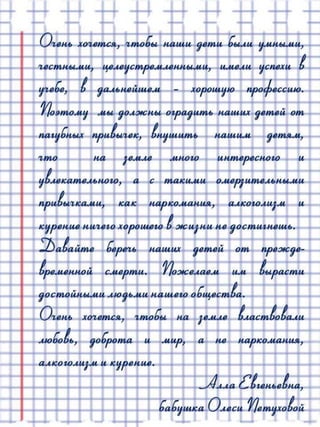 Очень хочется, чтобы наши дети были умными,
честными, целеустремленными, имели успехи в
учебе, в дальнейшем - хорошую профессию.
Поэтому мы должны оградить наших детей от
пагубных привычек, внушить нашим детям,
что на земле много интересного и
увлекательного, а с такими омерзительными
привычками, как наркомания, алкоголизм и
курение ничего хорошего в жизни не достигнешь.
Давайте беречь наших детей от прежде-
временной смерти. Пожелаем им вырасти
достойными людьми нашего общества.
Очень хочется, чтобы на земле властвовали
любовь, доброта и мир, а не наркомания,
алкоголизм и курение.
Алла Евгеньевна,
бабушка Олеси Петуховой